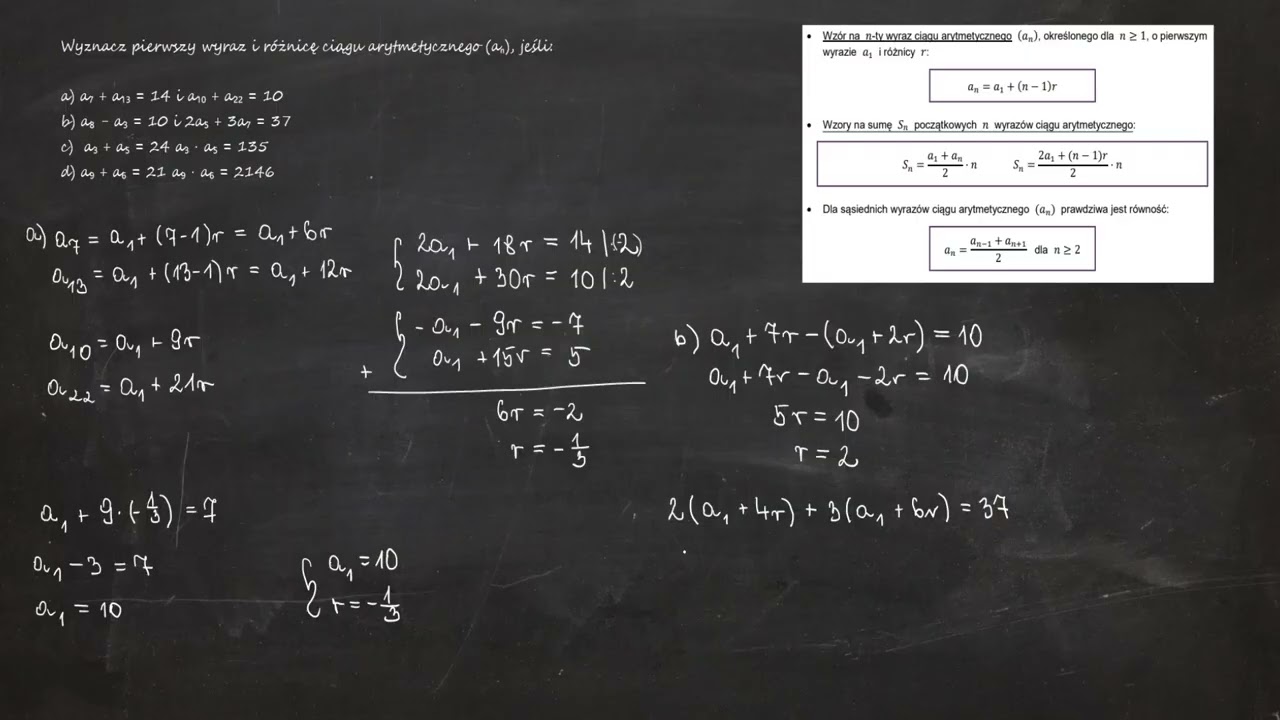 Wyznacz pierwszy wyraz i różnicę ciągu arytmetycznego (aₙ), jeśli:
a) a₇ + a₁₃ = 14 i a₁₀ + a₂₂ = 10
b) a₈ - a₃ = 10 i 2a₅ + 3a₇ = 37
c) a₃ + a₅ = 24 a₃ · a₅ = 135
d) a₉ + a₆ = 21 a₉ · a₆ = 2146
• Wzór na n-ty wyraz ciągu arytmetycznego (aₙ), określonego dla n ≥ 1, o pierwszym
wyrazie a₁ i różnicy r:
aₙ = a₁ + (n − 1)r
• Wzory na sumę Sₙ początkowych n wyrazów ciągu arytmetycznego:
Sₙ = (a₁ + aₙ)/2 · n    Sₙ = (2a₁ + (n − 1)r)/2 · n
• Dla sąsiednich wyrazów ciągu arytmetycznego (aₙ) prawdziwa jest równość:
aₙ = (aₙ₋₁ + aₙ₊₁)/2 dla n ≥ 2
a) a₇ = a₁ + (7-1)r = a₁ + 6r
a₁₃ = a₁ + (13-1)r = a₁ + 12r
a₁₀ = a₁ + 9r
a₂₂ = a₁ + 21r
{ 2a₁ + 18r = 14 |:(-2)
2a₁ + 30r = 10 |:2
{ - a₁ - 9r = -7
+ a₁ + 15r = 5
6r = -2
r = - 1/3
a₁ + 9·(- 1/3) = 7
a₁ - 3 = 7
a₁ = 10
{ a₁ = 10
r = - 1/3
b) a₁ + 7r - (a₁ + 2r) = 10
a₁ + 7r - a₁ - 2r = 10
5r = 10
r = 2
2(a₁ + 4r) + 3(a₁ + 6r) = 37